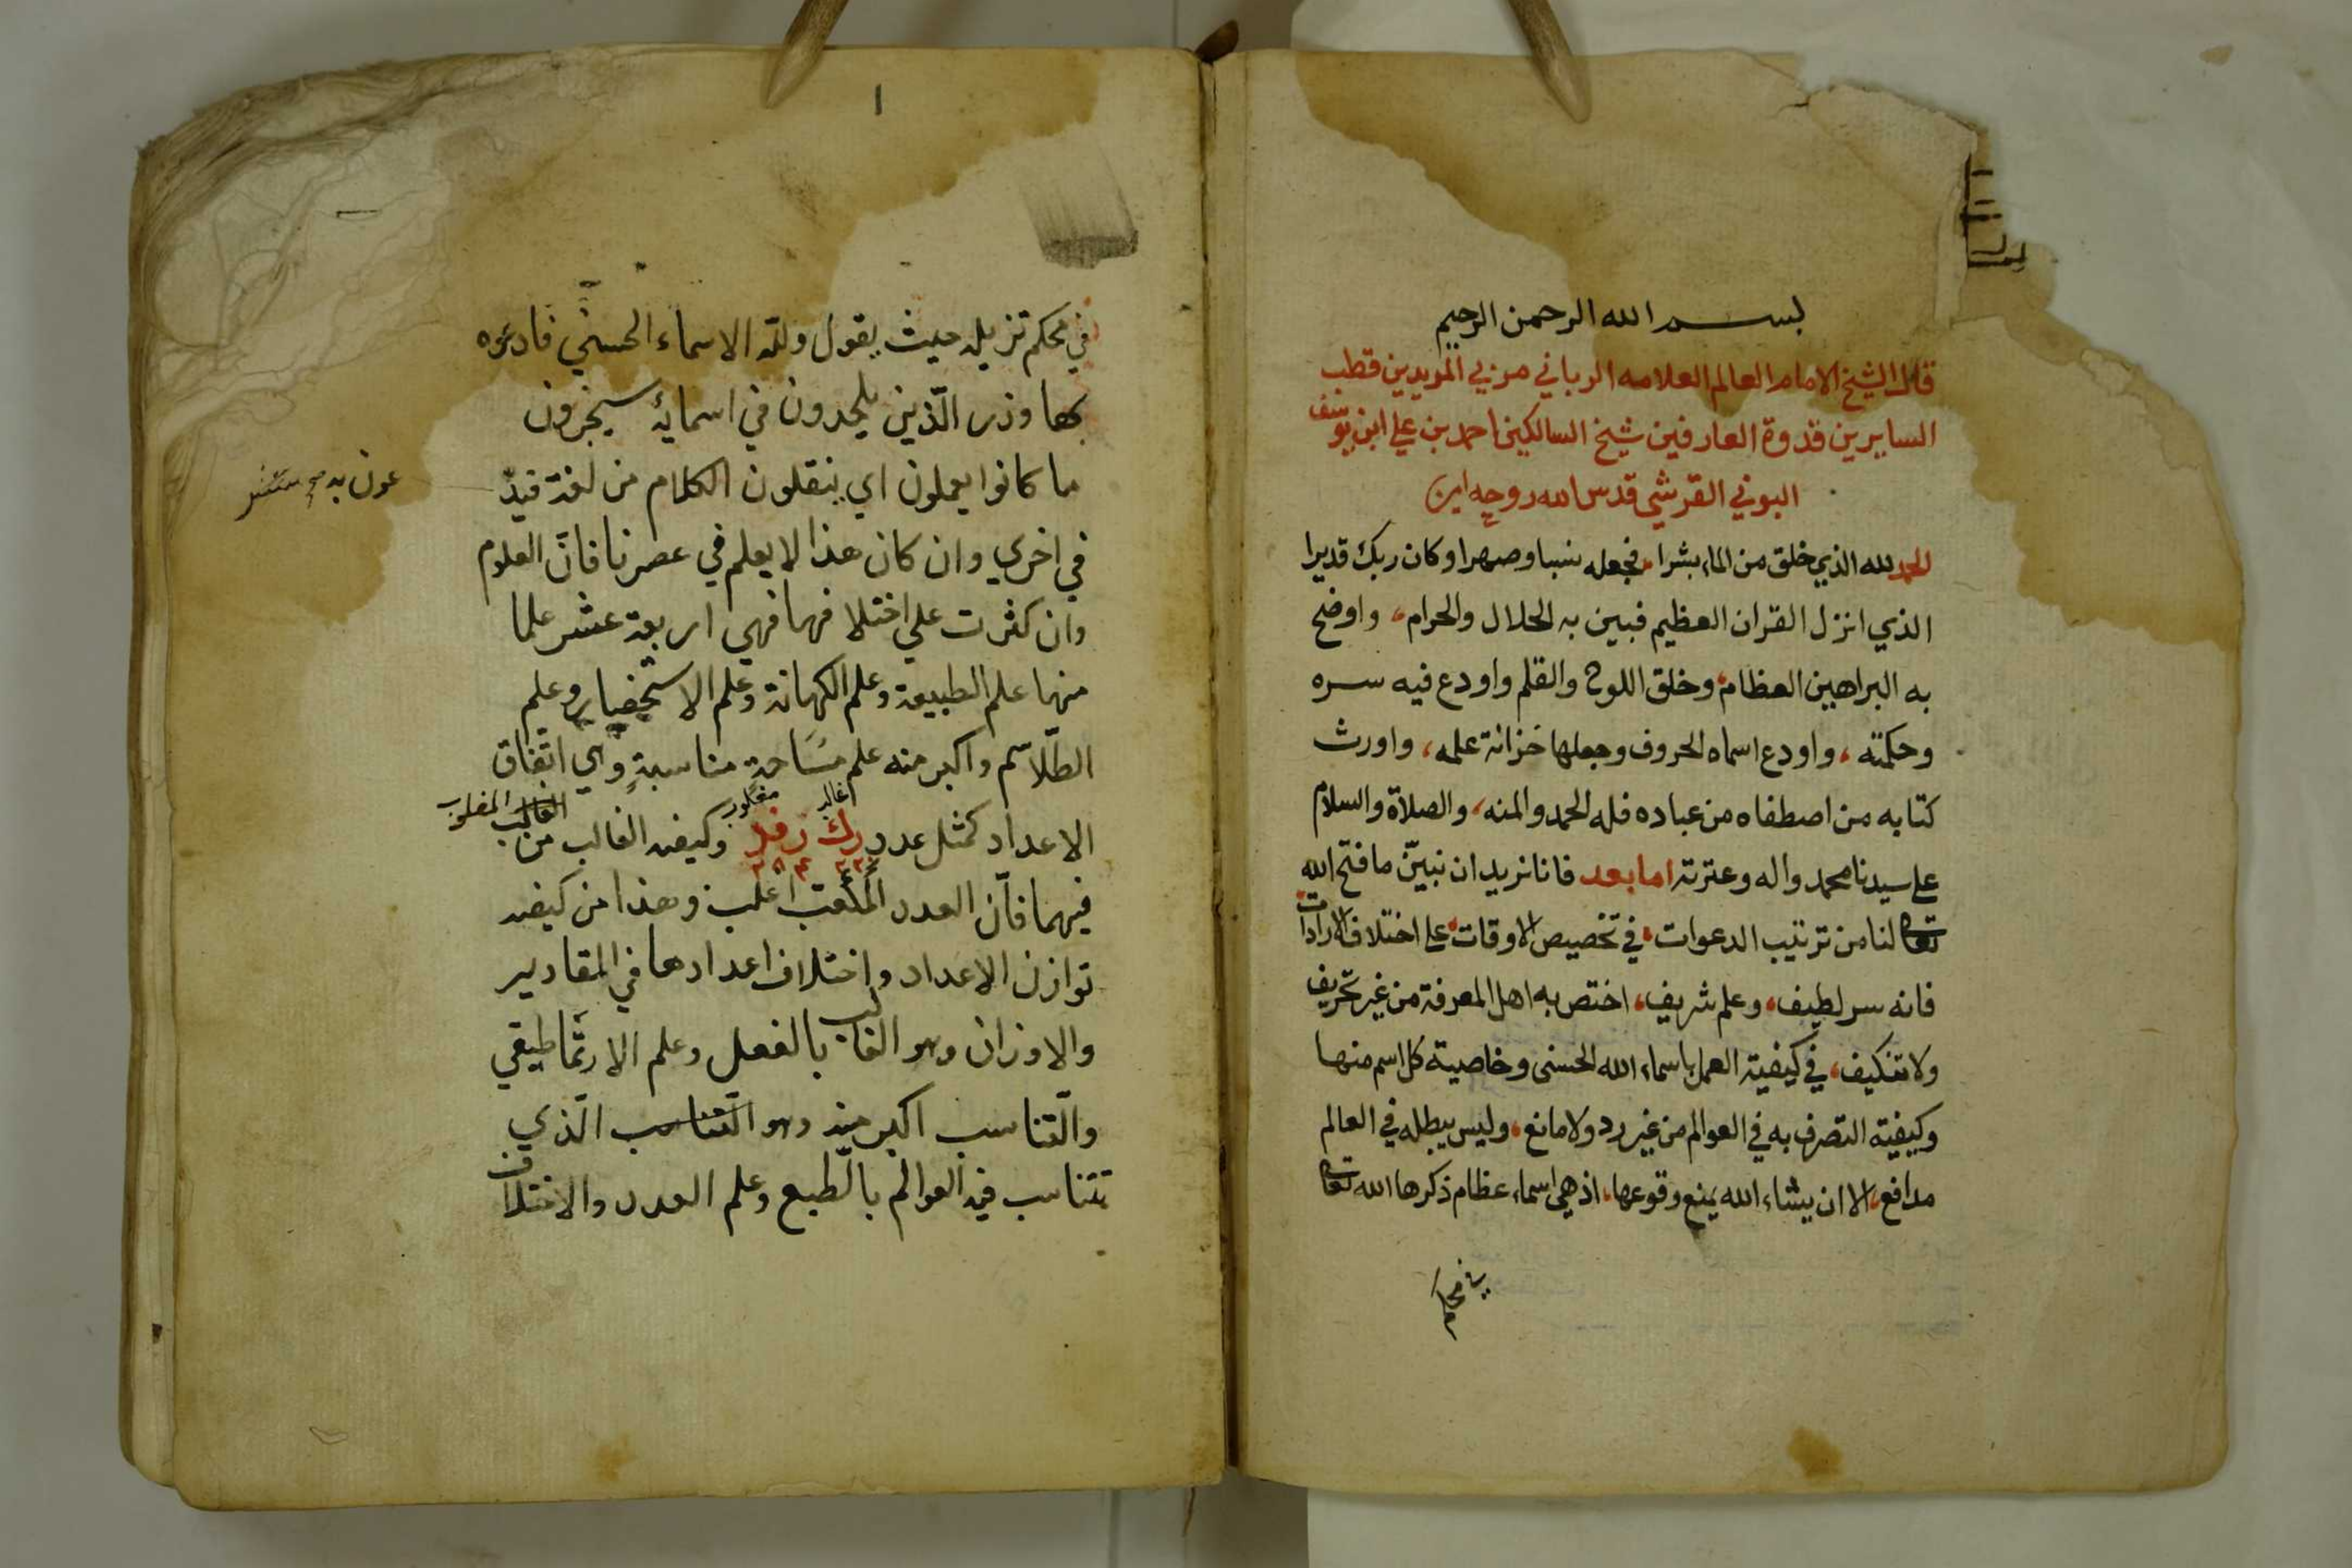 بسم الله الرحمن الرحيم
قال الشيخ الامام العالم العلامه الرباني مربي المريدين قطب
السايرين قدوة العارفين شيخ السالكين احمد بن علي ابن يوسف
البوني القرشي قدس الله روحه امين
الحمد لله الذي خلق من الماء بشرا، فجعله نسبا وصهرا وكان ربك قديرا
الذي انزل القران العظيم فبين به الحلال والحرام، واوضح
به البراهين العظام، وخلق اللوح والقلم واودع فيه سره
وحكمته، واودع اسماه الحروف وجعلها خزانة علمه، واورث
كتابه من اصطفاه من عباده فله الحمد والمنه، والصلاة والسلام
علي سيدنا محمد واله وعترته اما بعد فانا نريد ان نبيّن ما فتح الله
تعالى لنا من ترتيب الدعوات، في تخصيص الاوقات، علي اختلاف الارادات
فانه سر لطيف، وعلم شريف، اختص به اهل المعرفة من غير تحريف
ولا تنكيف، في كيفية العمل باسماء الله الحسنى وخاصية كل اسم منها
وكيفية التصرف به في العوالم من غير رد ولا مانع، وليس يبطله في العالم
مدافع، الا ان يشاء الله يمنع وقوعها، اذ هي اسماء عظام ذكرها الله تعالى
في محكم
١
في محكم تنزيله حيث يقول ولله الاسماء الحسني فادعوه
بها وذر الّذين يلحدون في اسمايه سيجزون
ما كانوا يعملون اي ينقلون الكلام من لغة
في اخري وان كان هذا لا يعلم في عصرنا فانّ العلوم
وان كثرت علي اختلافها فهي اربعة عشر علما
منها علم الطبيعة وعلم الكهانة وعلم الاستحضار وعلم
الطّلاسم واكبر منه علم مسَاحةٍ مناسبةٍ واي اتّفاق
اغالب مغلوب الغالب المغلوب
الاعداد كمثل عدد رك رفد وكيفه الغالب من
٢٢٠ ٢٨٤
فيهما فانّ العدد اغلب وهذا من كيفه
توازن الاعداد واختلاف اعدادها في المقادير
والاوزان وهو الغالب بالفعل وعلم الارثماطيقي
والّتناسب اكبر منه وهو التناسب الّذي
تتناسب فيه العوالم بالّطبع وعلم العدد والاختلاف